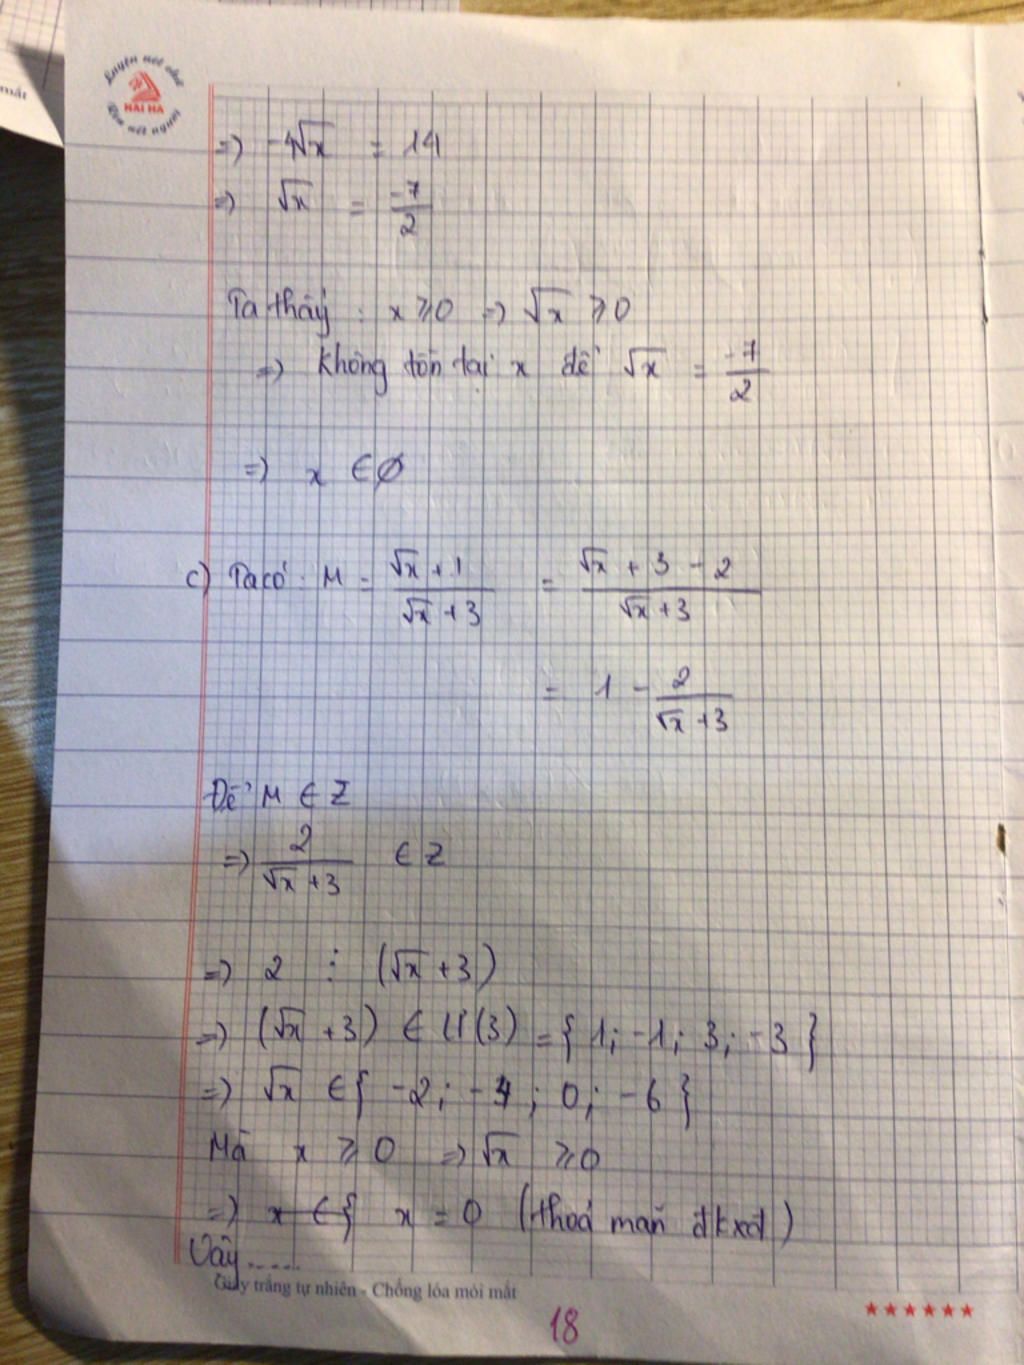 Luyện nét chữ
HẢI HÀ
Rèn nết người
mắt
=) -4√x = 14
=) √x = -7/2
Ta thấy : x ⩾ 0 =) √x ⩾ 0
=) không tồn tại x để √x = -7/2
=) x ∈ ∅
c) Ta có : M = (√x + 1)/(√x + 3) = (√x + 3 - 2)/(√x + 3)
= 1 - 2/(√x + 3)
Để M ∈ Z
=) 2/(√x + 3) ∈ Z
=) 2 ⋮ (√x + 3)
=) (√x + 3) ∈ Ư(3) = { 1; -1; 3; -3 }
=) √x ∈ { -2; -4; 0; -6 }
Mà x ⩾ 0 =) √x ⩾ 0
=) x ∈ { x = 0 (thoả mãn đkxđ)
Vậy.....
Giấy trắng tự nhiên - Chống lóa mỏi mắt
18